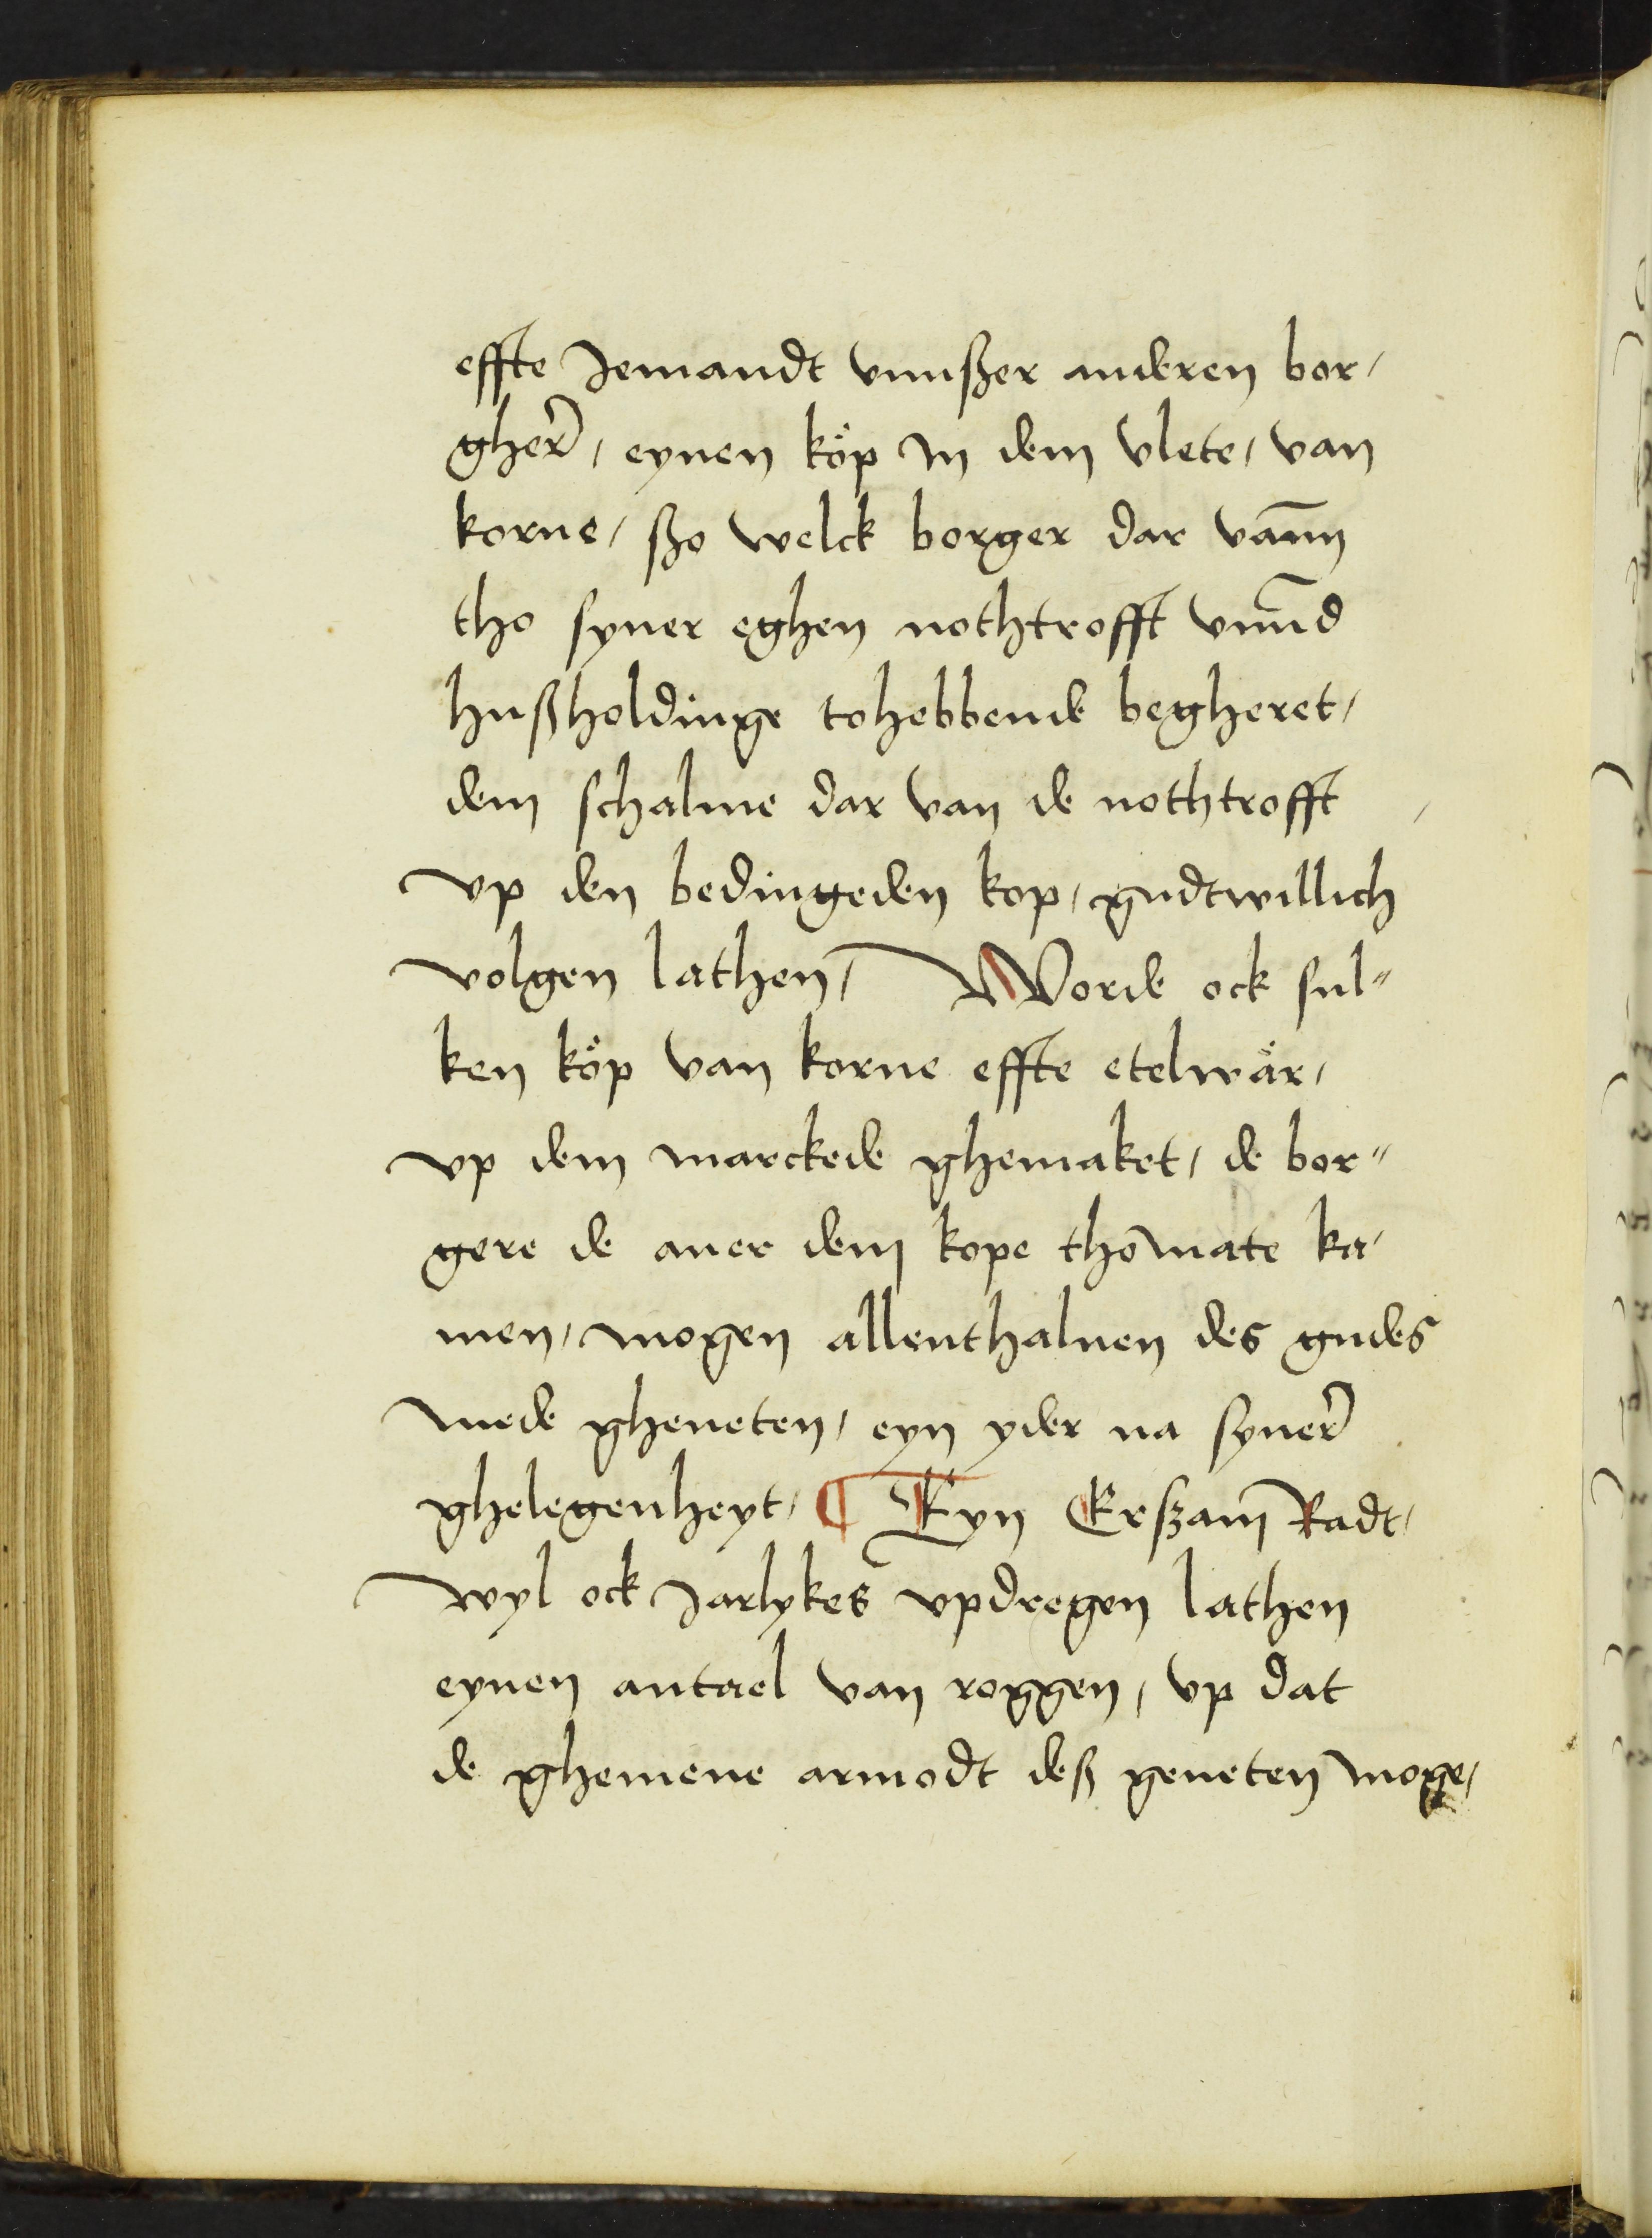 effte Jemandt vnnßer anderen bor/
gher᷑ / eynen kőp In dem vlete / van
korne / ßo welck borger dar vān̄n
tho syner eghen nothtrofft vnn̄d
hußholdinge tohebbende begheret /
dem schalme dar van de nothtrofft
vp den bedingeden kop / gudtwillich
volgen lathen / Worde ock sul//
ken kőp van korne effte etelwår /
vp dem marckede ghemaket / de bor//
gere de auer dem kope thomate ka/
men / mogen allenthaluen des gudes
mede gheneten / eyn yder na syner᷑
ghelegenheyt / ¶ Eyn Erßam Radt /
wyl ock Jarlykes updregen lathen
eynen antael van roggen / vp dat
de ghemene armodt deß geneten moge /